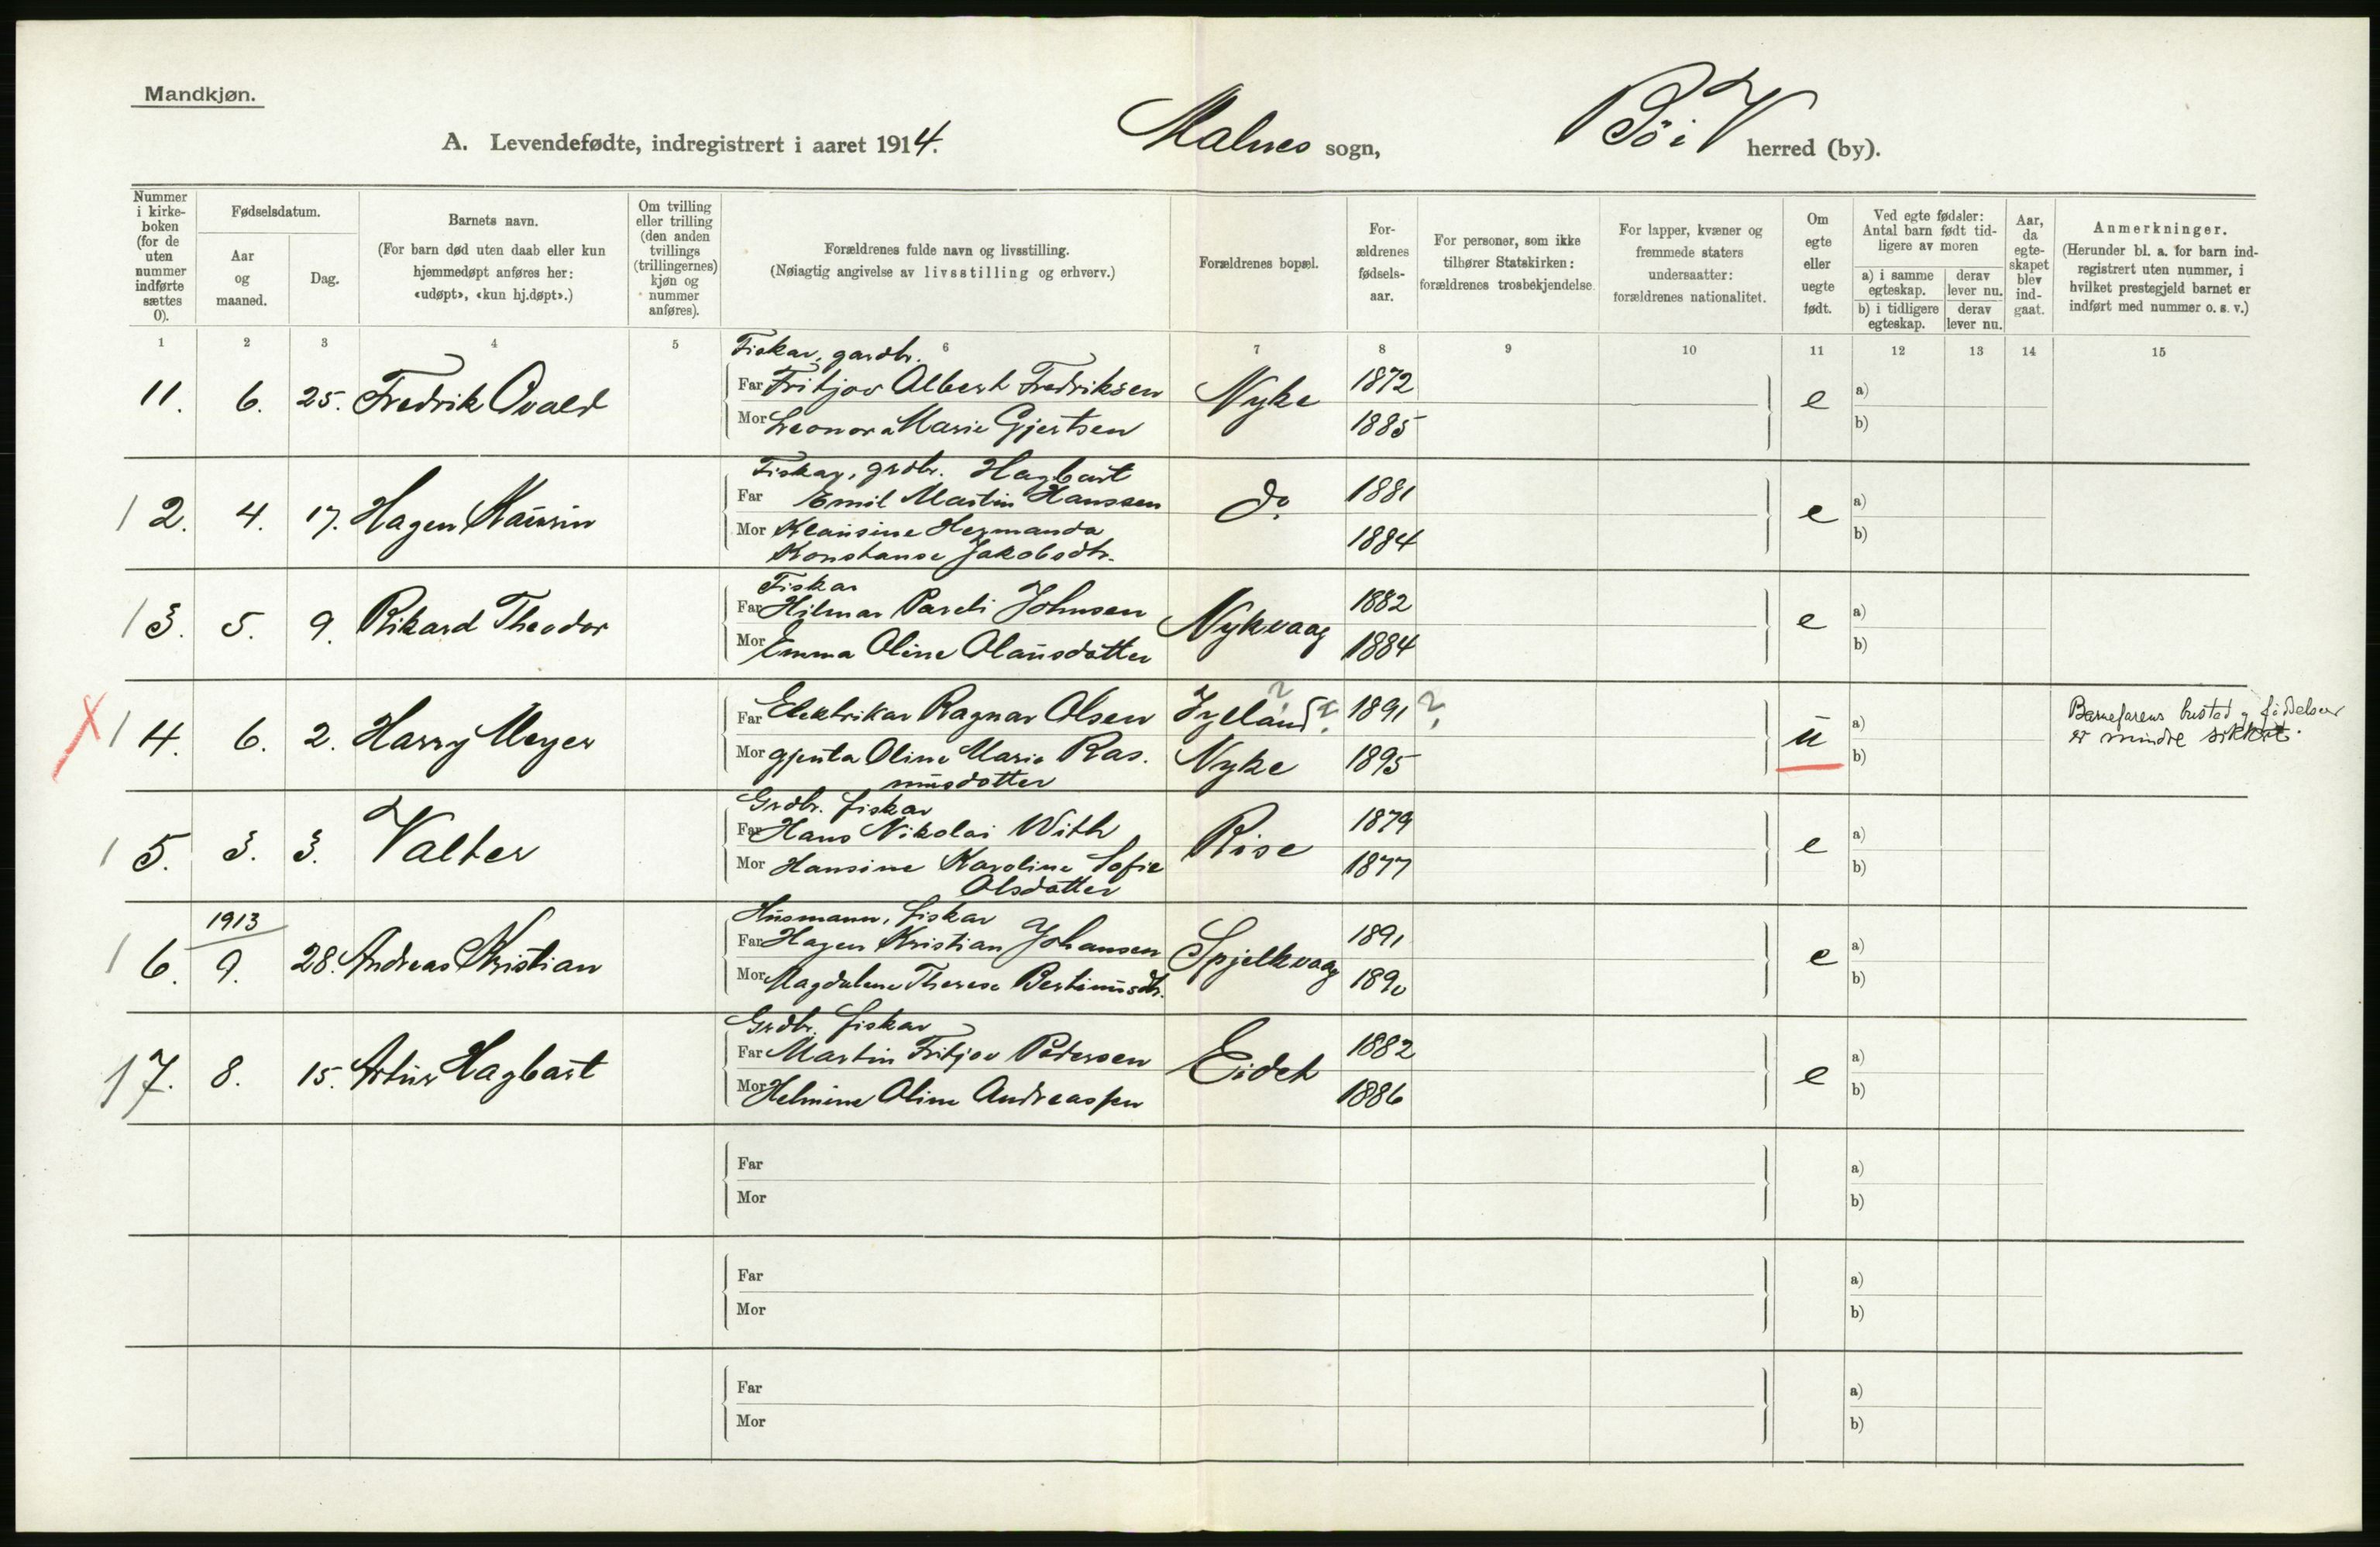 Mandkjøn.
A. Levendefødte, indregistrert i aaret 1914. Malnes sogn, Bö i V herred (by).
Nummer i kirke-boken (for de uten nummer indførte sættes 0).
Fødselsdatum.
Aar og maaned.
Dag.
Barnets navn.
(For barn død uten daab eller kun hjemmedøpt anføres her: «udøpt», «kun hj.døpt».)
Om tvilling eller trilling (den anden tvillings (trillingernes) kjøn og nummer anføres).
Forældrenes fulde navn og livsstilling.
(Nøiagtig angivelse av livsstilling og erhverv.)
Forældrenes bopæl.
For-ældrenes fødsels-aar.
For personer, som ikke tilhører Statskirken: forældrenes trosbekjendelse.
For lapper, kvæner og fremmede staters undersaatter: forældrenes nationalitet.
Om egte eller uegte født.
Ved egte fødsler: Antal barn født tid-ligere av moren
a) i samme egteskap. derav lever nu.
b) i tidligere egteskap. derav lever nu.
Aar, da egte-skapet blev ind-gaat.
Anmerkninger.
(Herunder bl. a. for barn ind-registrert uten nummer, i hvilket prestegjeld barnet er indført med nummer o. s. v.)
1 2 3 4 5 6 7 8 9 10 11 12 13 14 15
Fiskar, gardbr.
11. 6. 25. Fredrik Ovald Far Fritjov Albert Fredriksen Nyke 1872 e a)
Mor Leonora Marie Gjertsen 1885 b)
Fiskar, grdbr. Hagbart
12. 4. 17. Hagen Kaurin Far Emil Martin Hanssen do 1881 e a)
Mor Klausine Hermanda 1884 b)
Konstanse Jakobsdtr.
Fiskar
13. 5. 9. Rikard Theodor Far Hilmar Pareli Johnsen Nykvaag 1882 e a)
Mor Emma Oline Olausdatter 1884 b)
X 14. 6. 2. Harry Meyer Far Elektrikar Ragnar Olsen Jyeland? ? 1891 ? u a) Barnefarens bustad og fødselsaar
er mindre sikkert.
Mor Gjenta Oline Marie Ras- Nyke 1895 b)
musdotter
Grdbr. fiskar
15. 3. 3. Valter Far Hans Nikolai With Rise 1879 e a)
Mor Hansine Karoline Sofie 1877 b)
Olsdatter
Husmann, fiskar
16. 1913 9. 28. Andreas Kristian Far Hagen Kristian Johansen Spjelkvaag 1891 e a)
Mor Magdalene Therese Bertinusdtr. 1890 b)
Grdbr. fiskar
17. 8. 15. Artur Hagbart Far Martin Fritjov Pedersen Eidet 1882 e a)
Mor Helmine Oline Andreassen 1886 b)
Far a)
Mor b)
Far a)
Mor b)
Far a)
Mor b)